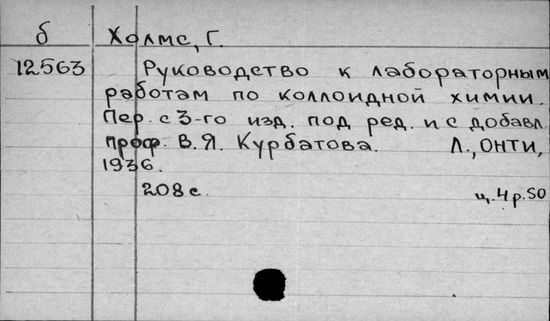 б Холмс, Г.
12563 Руководство к лабораторным
работам по коллоидной химии.
Пер. с 3-го изд. под ред. и с добавл.
проф. В.Я. Курбатова. Л., ОНТИ,
1936.
208 с. ц. 4 р. 50